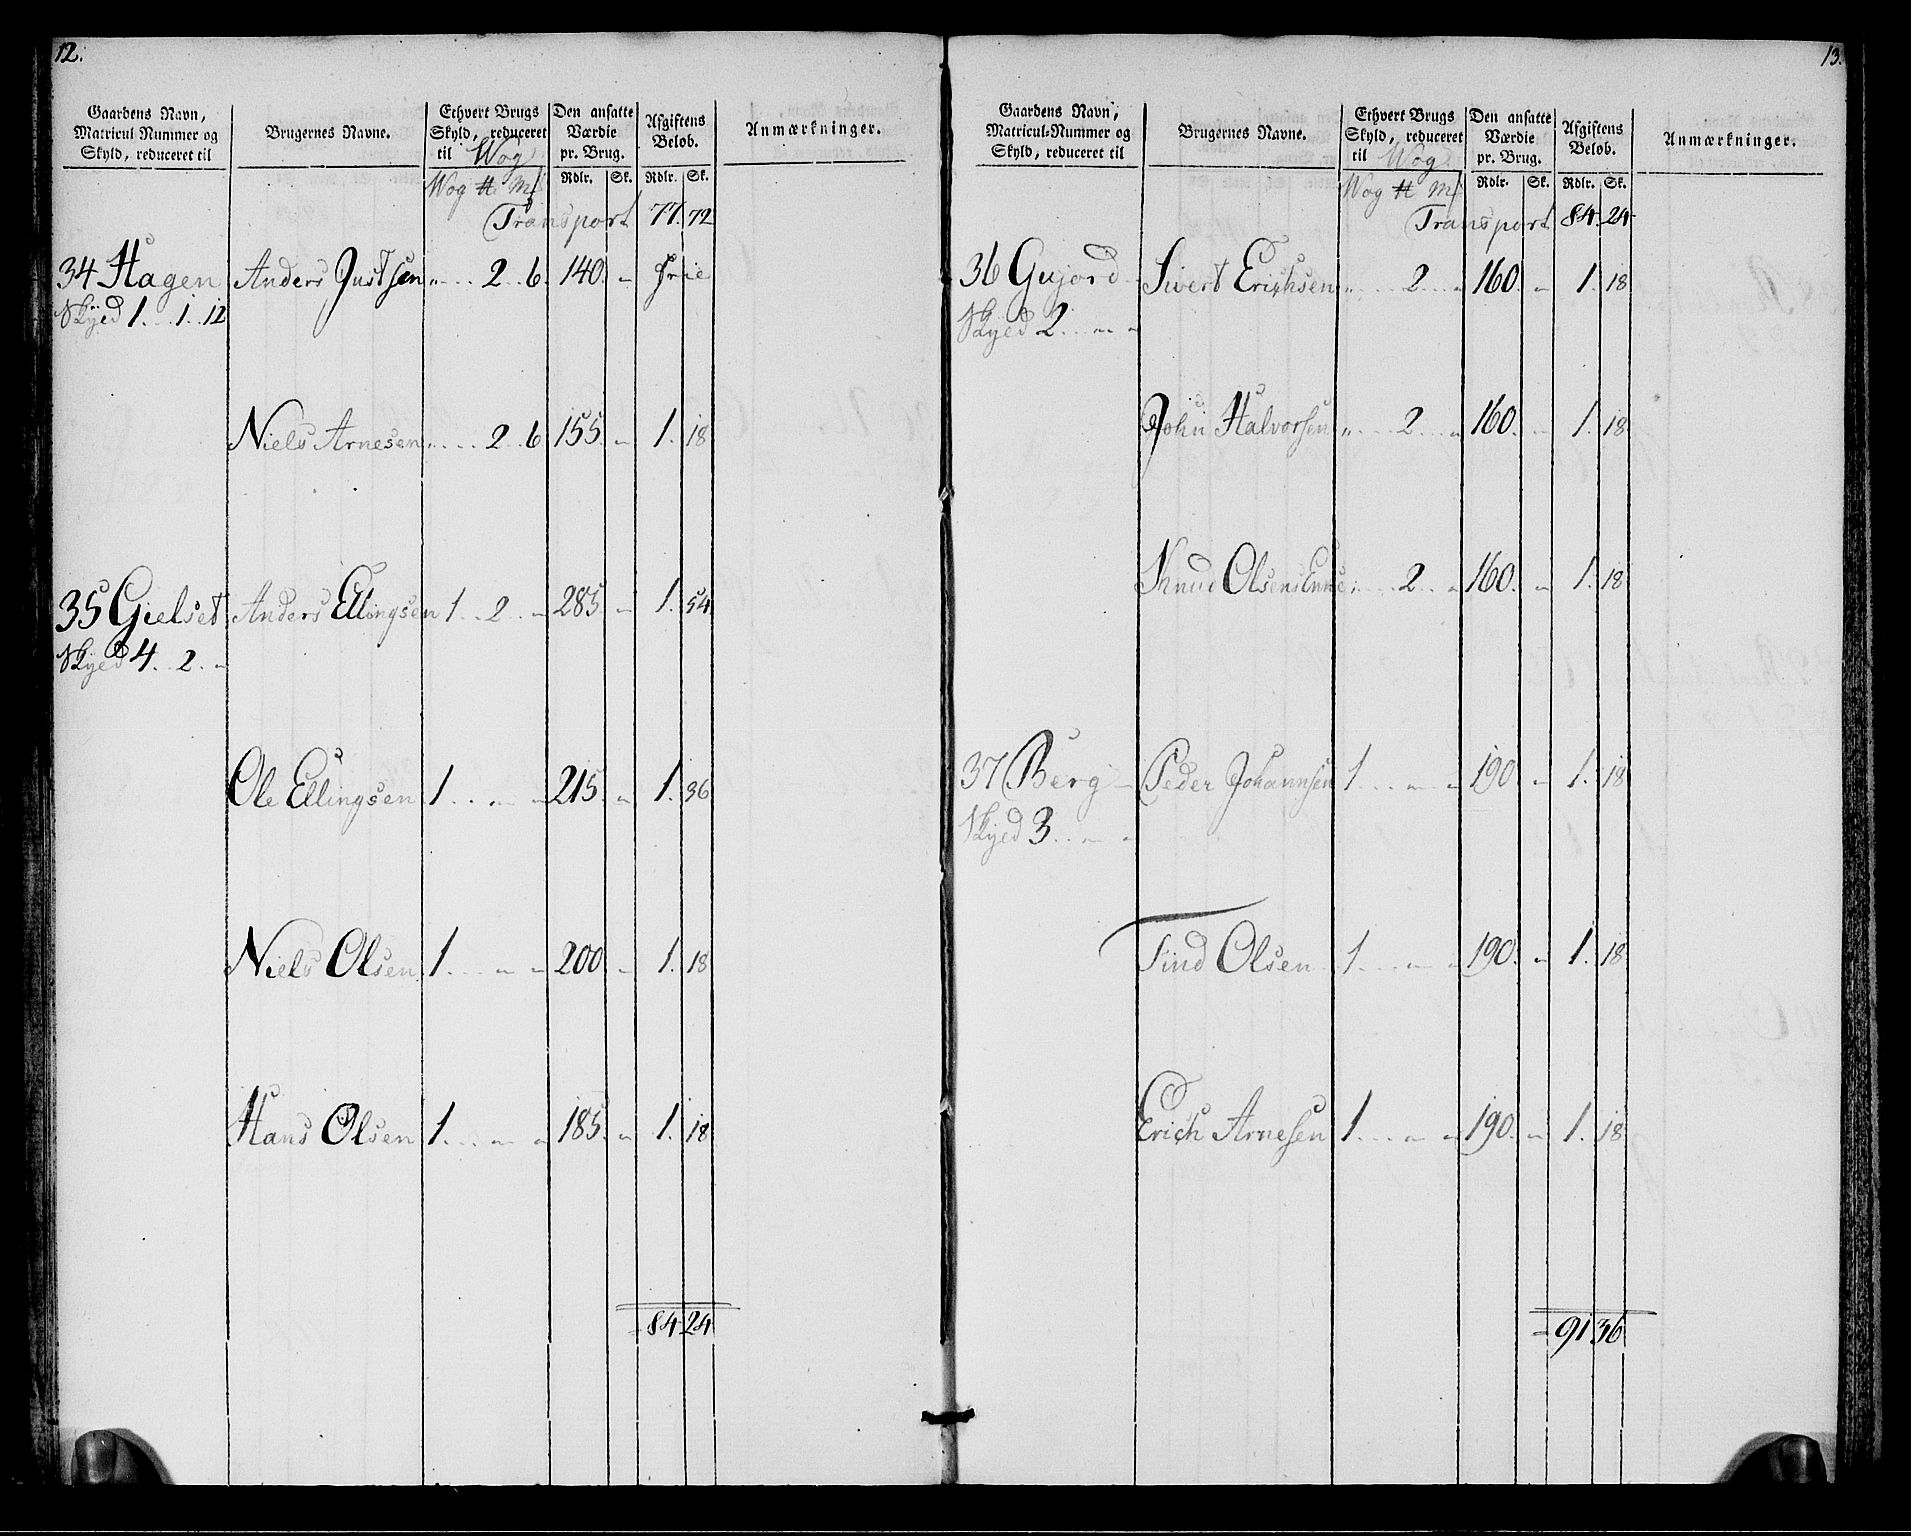 12.
Gaardens Navn, Matricul Nummer og Skyld, reduceret til | Brugernes Navne. | Ethvert Brugs Skyld, reduceret til Wog | Den ansatte Værdie pr. Brug. | Afgiftens Beløb. | Anmærkninger.
Wog ℔ Mf | Rdlr. | Sk. | Rdlr. | Sk.
Transport 77. 72
34 Hagen Anders Justsen „ . . . 2 . . 6. 140. „ frie
Skyed 1 . . . 1 . . 12
Niels Arnesen „ . . . 2 . . 6 155. „ 1. 18
35 Gielset Anders Ellingsen 1 . . 2 . . „ 285 „ 1. 54
Skyed 4 . . 2 . „
Ole Ellingsen 1 . . „ „ 215 „ 1. 36
Niels Olsen 1 . . . „ „ 200 „ 1. 18
Hans Olsen 1 . . . „ „ 185. „ 1. 18
84. 24
13.
Gaardens Navn, Matricul-Nummer og Skyld, reduceret til | Brugernes Navne. | Ethvert Brugs Skyld, reduceret til Wog | Den ansatte Værdie pr. Brug. | Afgiftens Beløb. | Anmærkninger.
Wog ℔ Mf | Rdlr. | Sk. | Rdlr. | Sk.
Transport 84. 24
36 Gujord Sivert Erichsen „ . . . 2 . . . „ 160. „ 1. 18
Skyed 2 . . „ „
John Halvorsen „ . . . 2 . . . „ 160. „ 1. 18
Knud Olsens Enke „ . . . 2 . . „ 160. „ 1. 18
37 Berg Peder Johannsen 1 . . . „ „ 190 „ 1. 18
Skyed 3 . . „ „
Find Olsen 1 . . . „ „ 190. „ 1. 18
Erich Arnesen 1 . . . „ „ 190. „ 1. 18
91 36